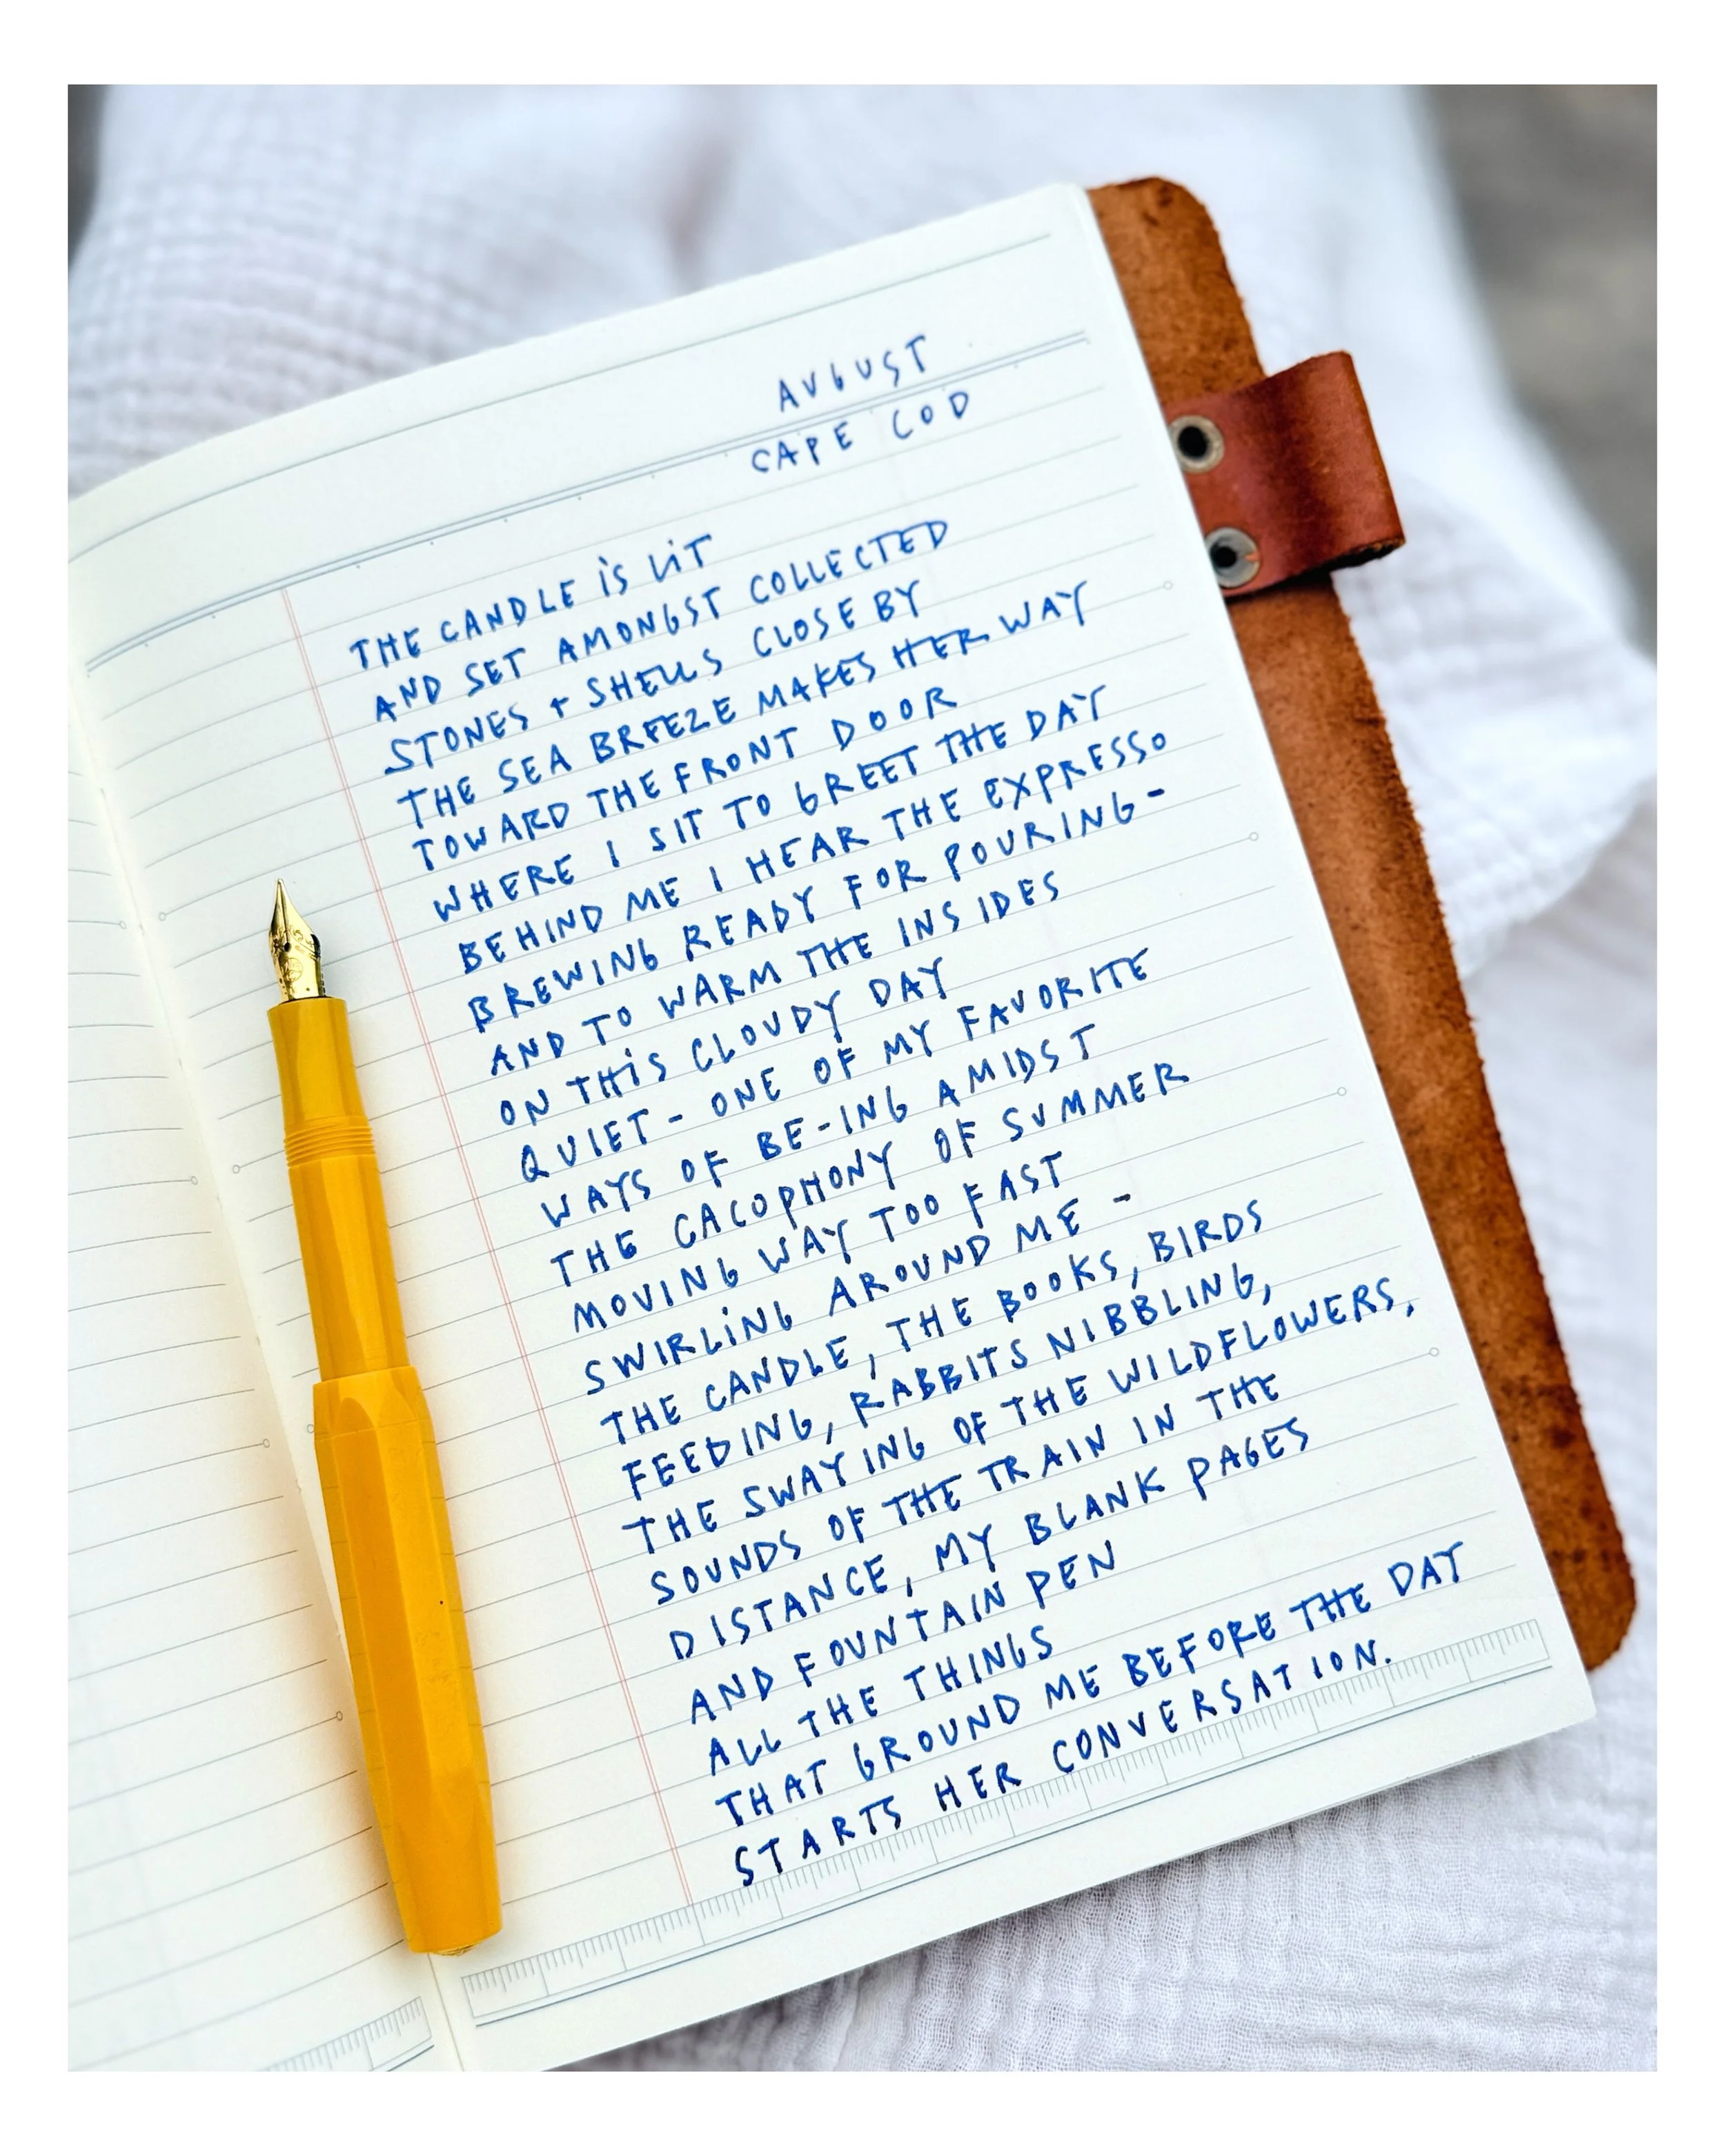 AUGUST
CAPE COD
THE CANDLE IS LIT
AND SET AMONGST COLLECTED
STONES + SHELLS CLOSE BY
THE SEA BREEZE MAKES HER WAY
TOWARD THE FRONT DOOR
WHERE I SIT TO GREET THE DAY
BEHIND ME I HEAR THE EXPRESSO
BREWING READY FOR POURING -
AND TO WARM THE INSIDES
ON THIS CLOUDY DAY
QUIET - ONE OF MY FAVORITE
WAYS OF BE-ING AMIDST
THE CACOPHONY OF SUMMER
MOVING WAY TOO FAST
SWIRLING AROUND ME -
THE CANDLE, THE BOOKS, BIRDS
FEEDING, RABBITS NIBBLING,
THE SWAYING OF THE WILDFLOWERS,
SOUNDS OF THE TRAIN IN THE
DISTANCE, MY BLANK PAGES
AND FOUNTAIN PEN
ALL THE THINGS
THAT GROUND ME BEFORE THE DAY
STARTS HER CONVERSATION.